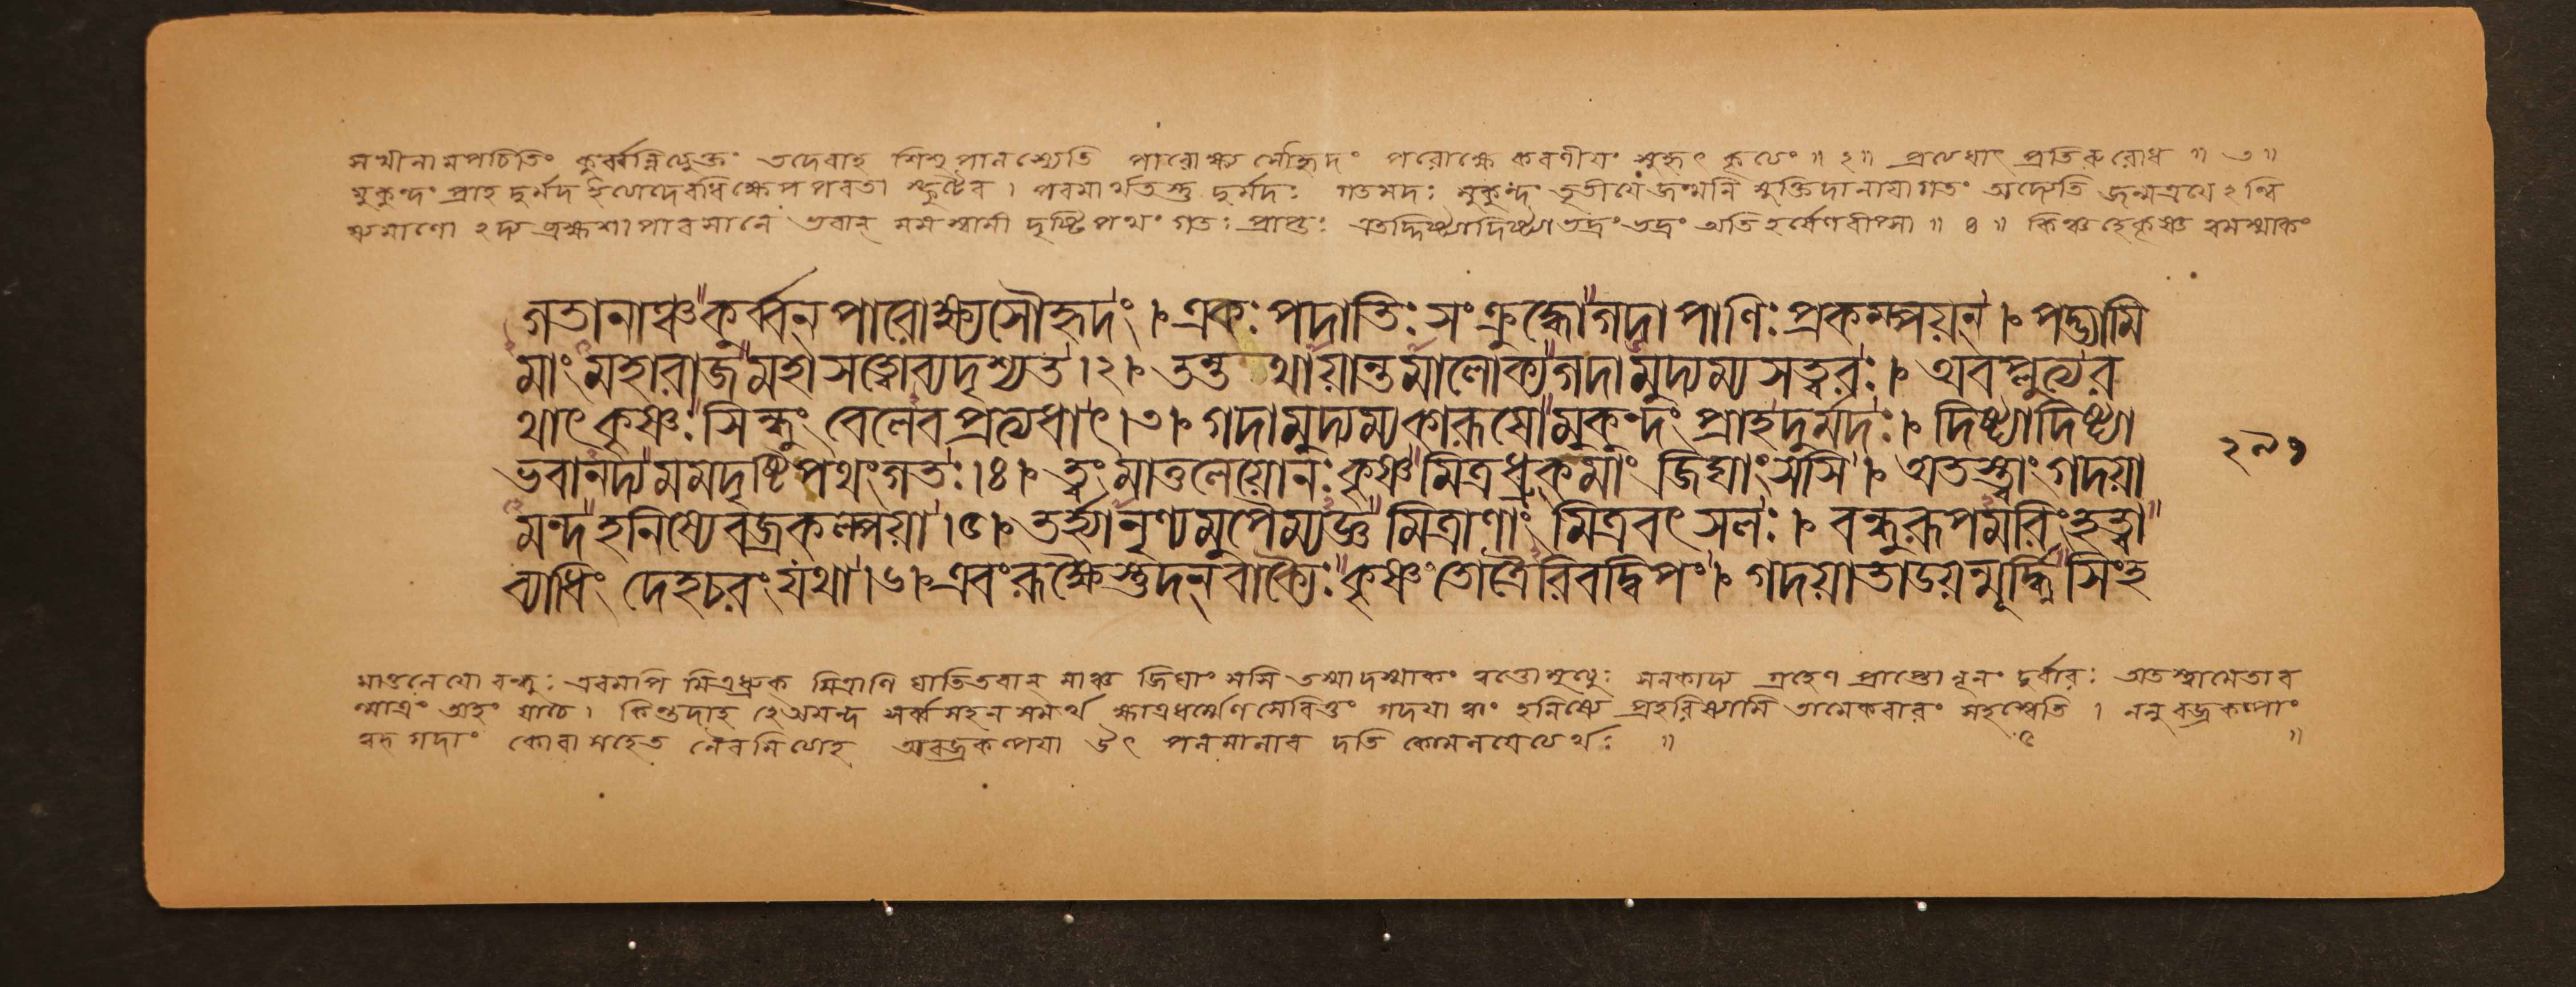 সখীনামপচিতিং কুর্ব্বন্নিত্যুক্তং তদেবাহ শিশুপালস্যেতি পারোক্ষ্যসৌহৃদং পরোক্ষে করণীয়ং সুহৃৎ কৃত্যং ॥ ২॥ প্রত্যধাৎ প্রতিরুরোধ ॥ ৩॥
মুকুন্দং প্রাহ দুর্মদ ইত্যেদেবধিক্ষেপপরতা স্ফুটৈব । পরমার্থতস্তু দুর্মদঃ গতমদঃ মুকুন্দং তৃতীয়ে জন্মনি মুক্তিদানায়াগতং অদ্যেতি জন্মত্রয়ে ২ন্বি
ষ্যমাণো ২দ্য ব্রহ্মশাপাবসানে ভবান্ মমস্বামী দৃষ্টিপথং গতঃ প্রাপ্তঃ এতদ্দিষ্ট্যাদিষ্ট্যা ভদ্রং ভদ্রং অতিহর্ষেণবীপ্সা ॥ ৪॥ কিঞ্চ হে কৃষ্ণ ত্বমস্মাকং
গতানাঞ্চ কুর্ব্বন্ পারোক্ষ্যসৌহৃদং । একঃ পদাতিঃ সংক্রুদ্ধো গদাপাণিঃ প্রকম্পয়ন্ । পদ্ভ্যামি
মাং মহারাজ মহাসত্ত্বোব্যদৃশ্যত ।২। তন্তথায়ান্তমালোক্য গদামুদ্যম্য সত্ত্বরঃ । অবপ্লুত্যর
থাৎ কৃষ্ণঃ সিন্ধুং বেলেব প্রত্যধাৎ ।৩। গদামুদ্যম্য কারূষো মুকুন্দং প্রাহ দুর্মদঃ । দিষ্ট্যাদিষ্ট্যা
২৯১
ভবানদ্য মম দৃষ্টিপথং গতঃ ।৪। ত্বং মাতুলেয়োনঃ কৃষ্ণ মিত্রধ্রুক্ মাং জিঘাংসসি । অতস্ত্বাং গদয়া
মন্দ হনিষ্যে বজ্রকল্পয়া ।৫। তর্হ্যানৃণ্যমুপৈম্যজ্ঞ মিত্রাণাং মিত্রবৎসলঃ । বন্ধুরূপমরিং হত্বা
ব্যাধিং দেহচরং যথা ।৬। এবং রূক্ষৈস্তুদন্ বাক্যৈঃ কৃষ্ণং তোত্রৈরিবদ্বিপং । গদয়াতাডয়ন্মূর্দ্ধ্নি সিংহ
মাতুলেয়ো বন্ধুঃ এবমপি মিত্রধ্রুক্ মিত্রাণি ঘাতিতবান্ মাঞ্চ জিঘাংসসি তস্মাদস্মাকং
মাত্রং অহং হে অমন্দ সর্ব্বসহনসমর্থ ক্ষাত্রধর্ম্মেণ গদয়া ত্বাং হনিষ্যে প্রহরিষ্যামি তামেকবারং সহস্বেতি । ননু বজ্রকল্পাং
গদাং কোবা সহেত অবজ্রকল্পয়া ॥ ৫ ॥